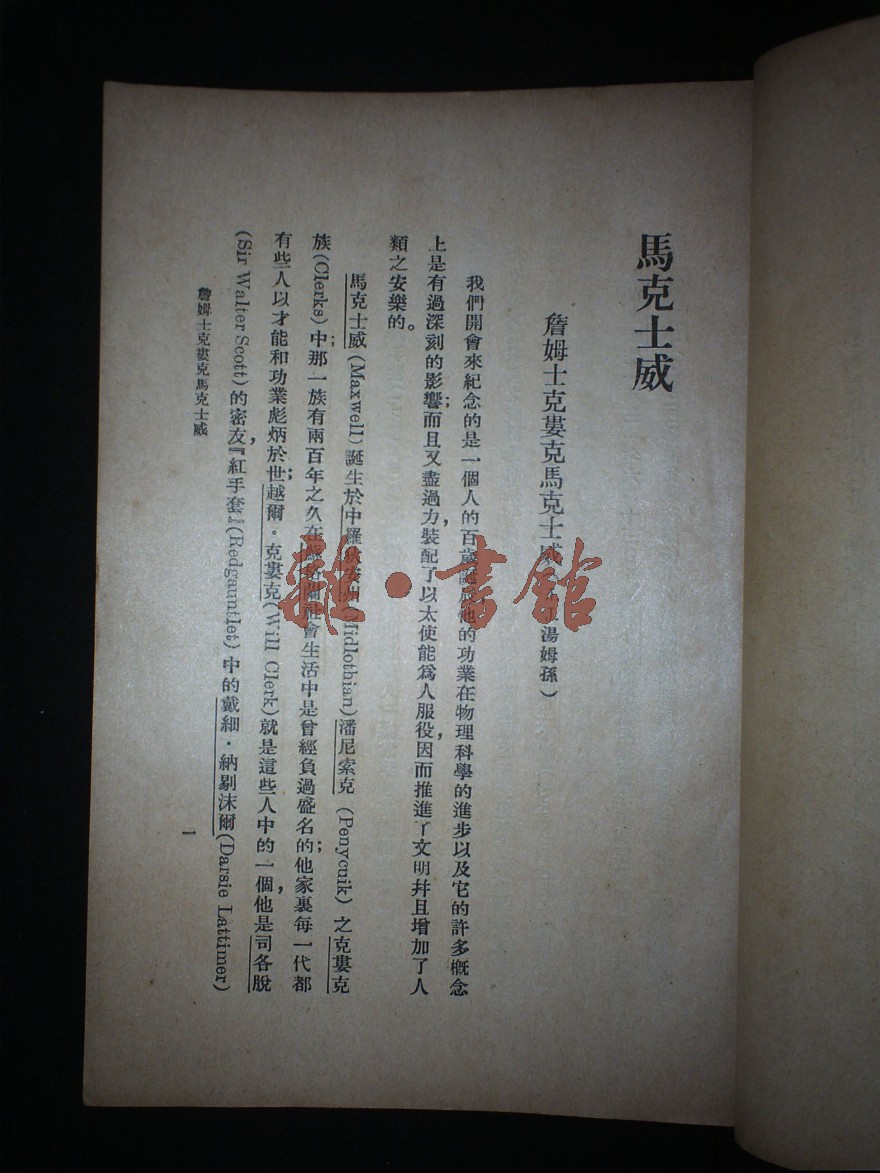 馬克士威
詹姆士克蔞克馬克士威
湯姆孫)
我們開會來紀念的是一個人的百歲誕辰他的功業在物理科學的進步以及它的許多概念
上是有過深刻的影響;而且又盡過力,裝配了以太使能爲人服役,因而推進了文明幷且增加了人
類之安樂的。
馬克士威(Maxwell)誕生於中羅 (Midlothian)潘尼索克(Penycuik)之克蔞克
族(Clerks)中;那一族有兩百年之久在蘇格蘭社會生活中是曾經負過盛名的;他家裏每一代都
有些人以才能和功業彪炳於世;越爾·克蔞克(Will Clerk)就是這些人中的一個,他是司各脫
(Sir Walter Scott)的密友,『紅手套』(Redgauntlet)中的戴細·納剔沫爾(Darsie Lattimer)
詹姆士克蔞克馬克士威
一
雜·書館